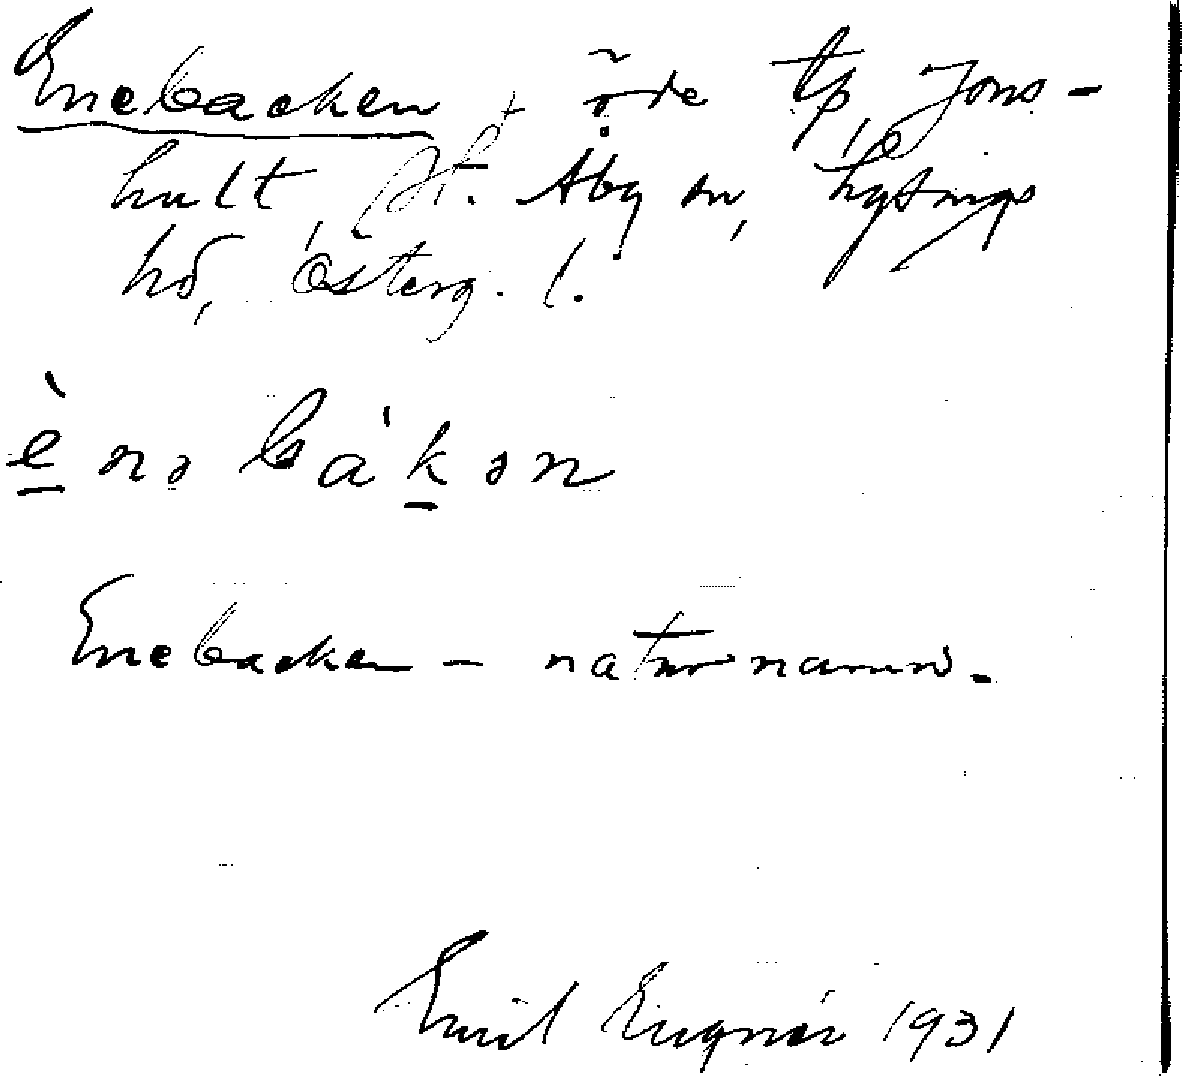 Enebacken, + öde tp, Jons-
hult, St. Åby sn, Lysings
hd, Österg. l.
è̱nəbáḵən
Enebacken – naturnamn.
Emil 1931